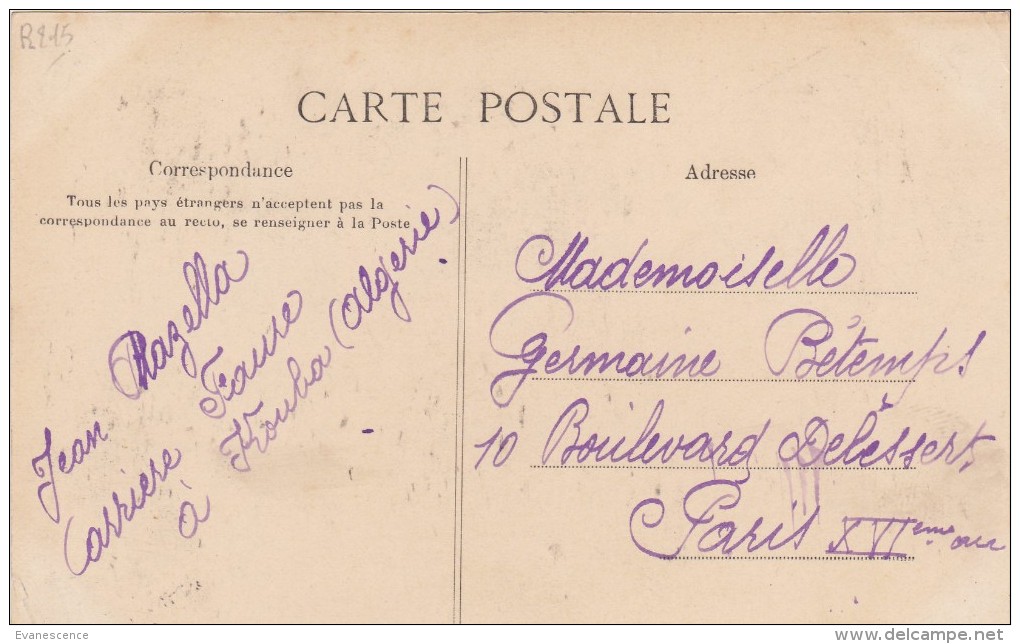 R815
CARTE POSTALE
Correspondance
Tous les pays étrangers n'acceptent pas la
correspondance au recto, se renseigner à la Poste
Jean Mazella
Carriere Faure
à Kouba (Algerie)
Adresse
Mademoiselle
Germaine Bétemps
10 Boulevard Delessert
Paris XVI eme arr
Evanescence
delcampe.net